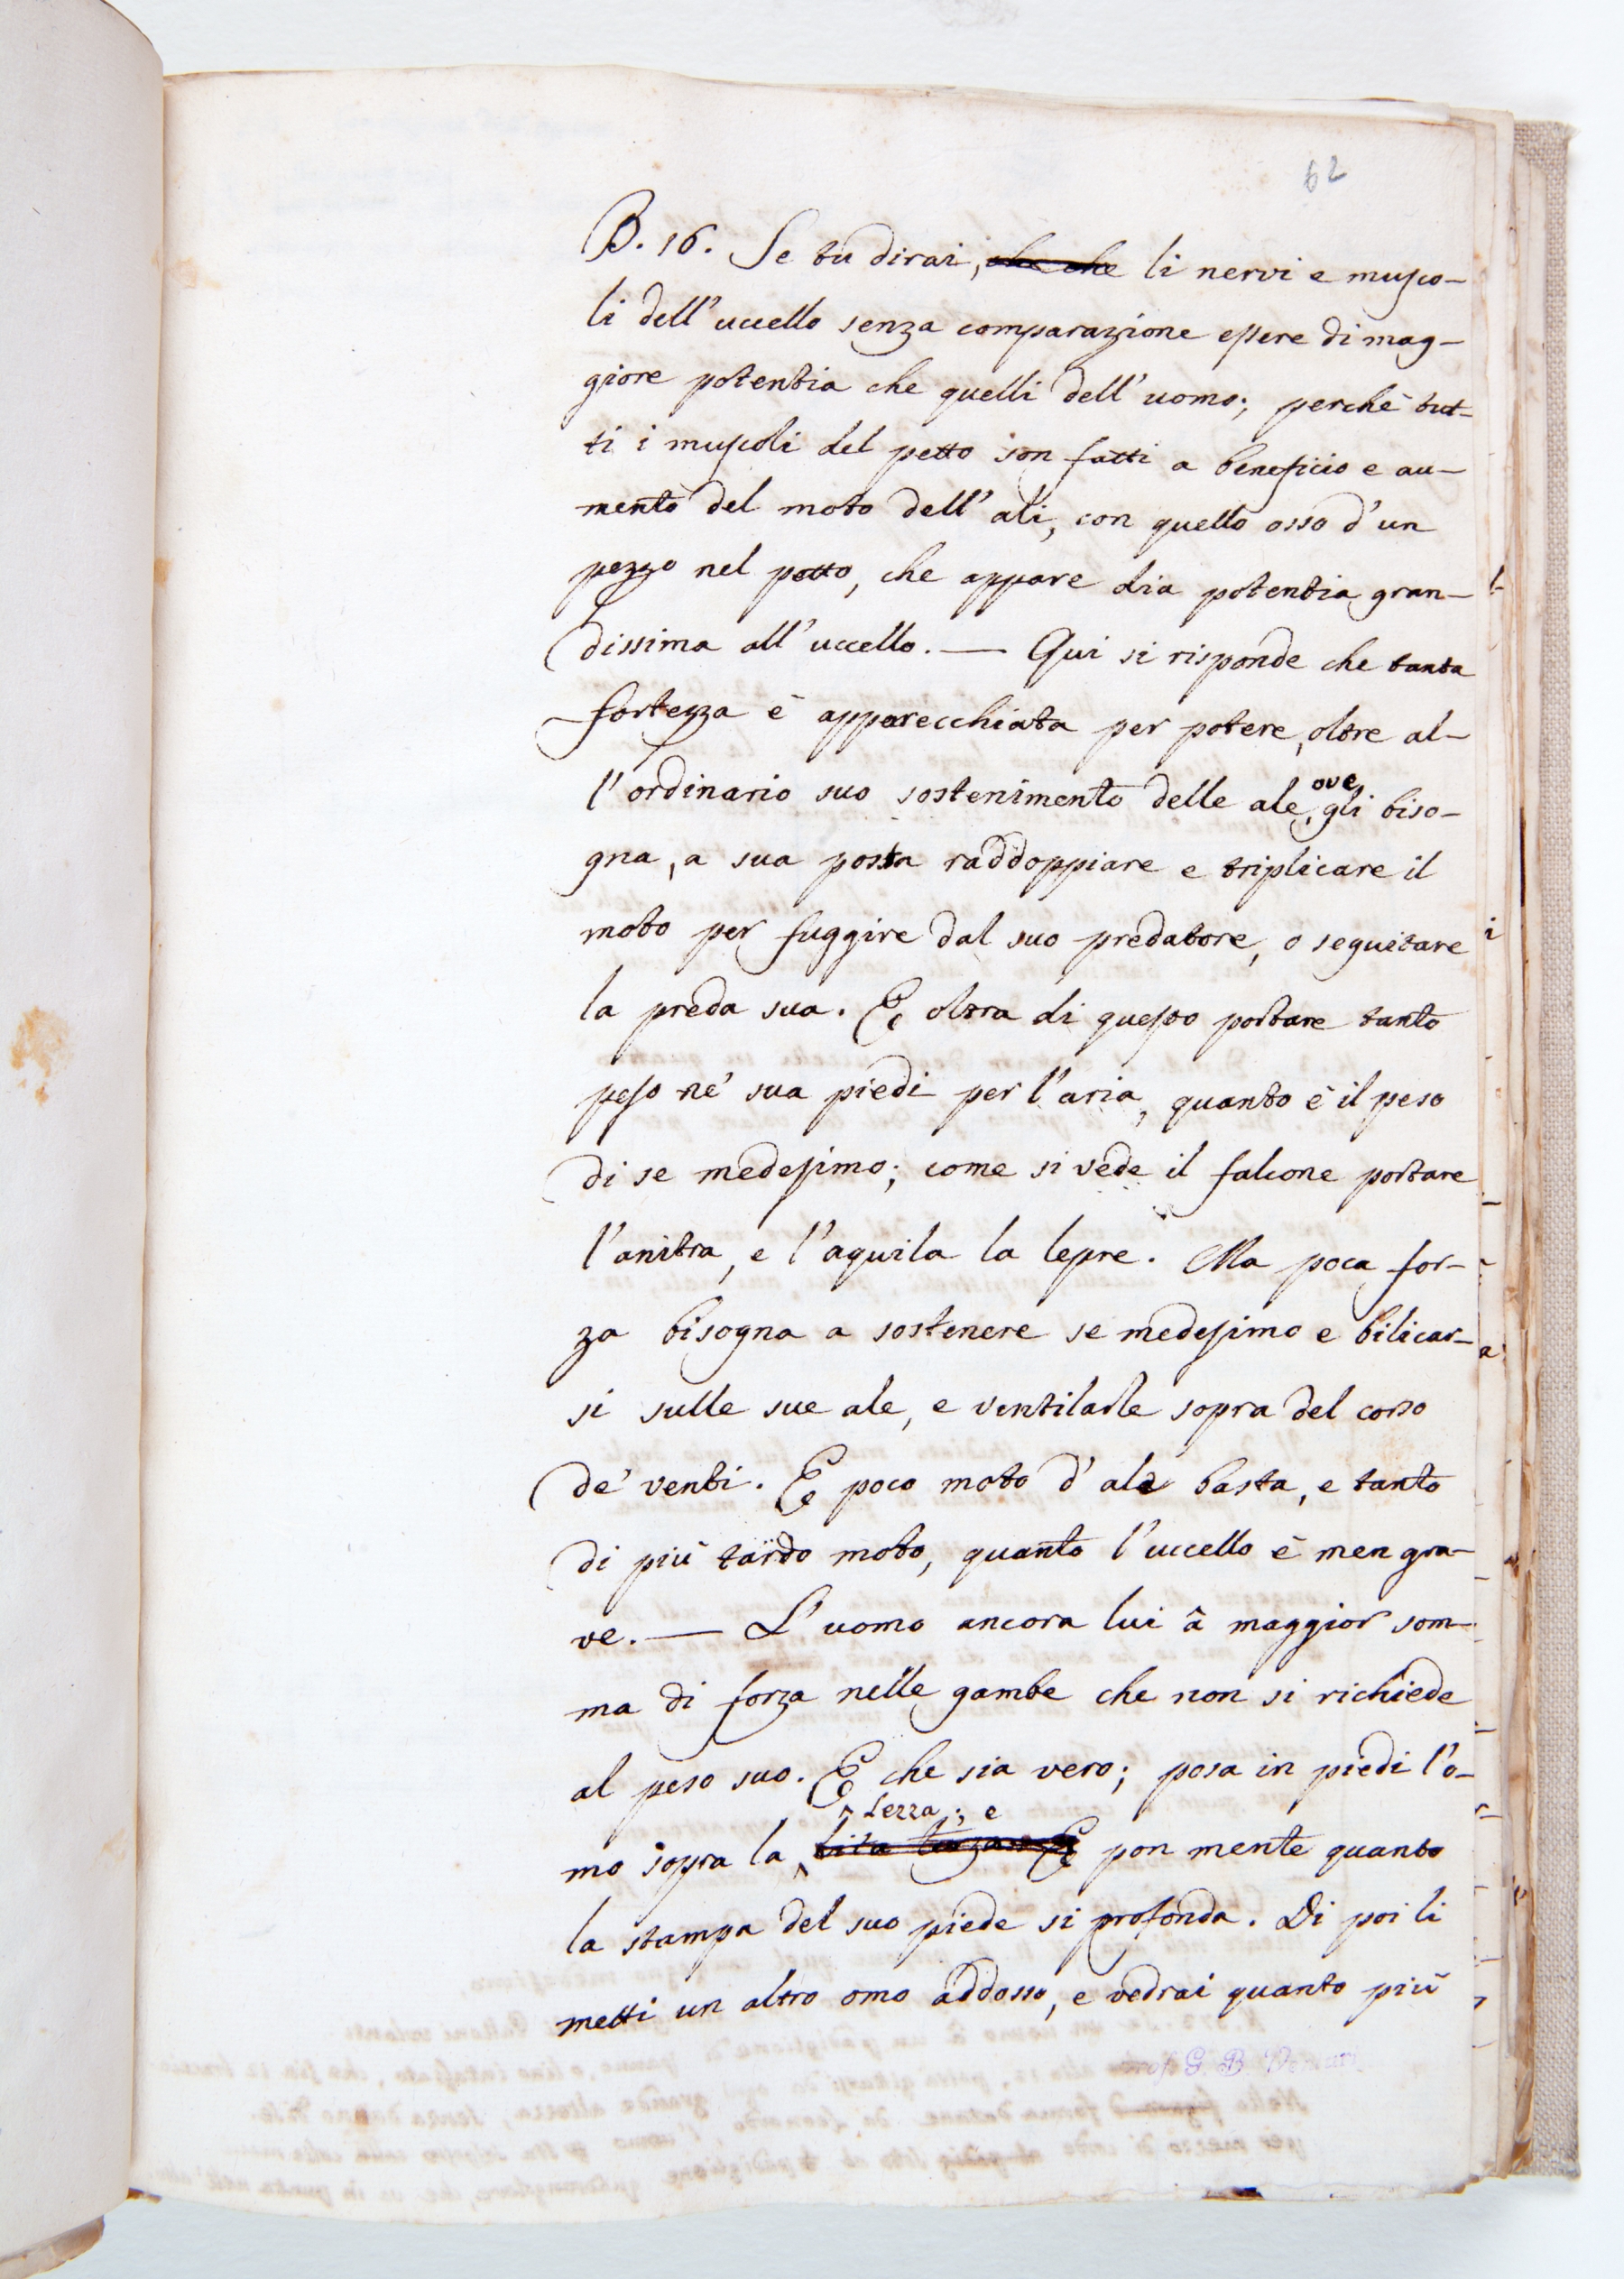 62
B. 16. Se tu dirai, che che li nervi e musco-
li dell'uccello senza comparazione essere di mag-
giore potentia che quelli dell'uomo; perchè tut-
ti i muscoli del petto son fatti a beneficio e au-
mento del moto dell'ali, con quello osso d'un
pezzo nel petto, che appare dia potentia gran-
dissima all'uccello. — Qui si risponde che tanta
fortezza è apparecchiata per potere, oltre al-
l'ordinario suo sostenimento delle ale, ove gli biso-
gna, a sua posta raddoppiare e triplicare il
moto per fuggire dal suo predatore, o seguitare
la preda sua. E oltra di questo portare tanto
peso ne' sua piedi per l'aria, quanto è il peso
di se medesimo; come si vede il falcone portare
l'anitra, e l'aquila la lepre. Ma poca for-
za bisogna a sostenere se medesimo e bilicar-
si sulle sue ale, e ventilarle sopra del corso
de' venti. E poco moto d'ale basta, e tanto
di più tardo moto, quanto l'uccello è men gra-
ve. — L'uomo ancora lui â maggior som-
ma di forza nelle gambe che non si richiede
al peso suo. E che sia vero; posa in piedi l'o-
terra; e
mo sopra la E pon mente quanto
la stampa del suo piede si profonda. Di poi li
metti un altro omo addosso, e vedrai quanto più
G. B.